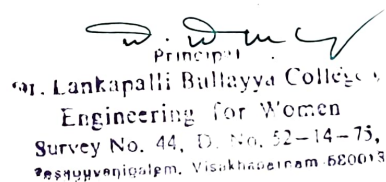 Principal
Dr. Lankapalli Bullayya College
Engineering for Women
Survey No. 44, D. No. 52-14-75,
Visakhapatnam-530013